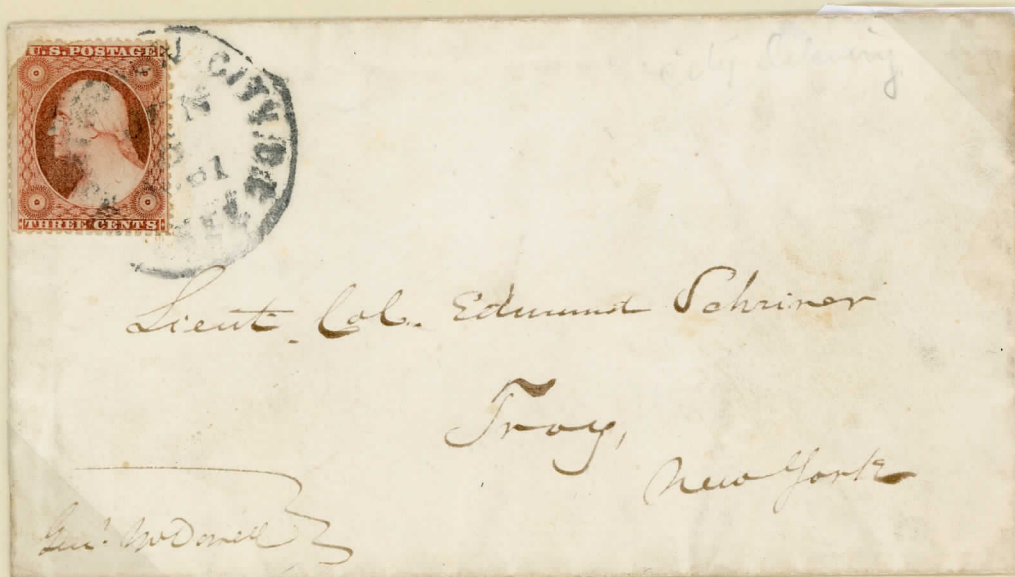 U.S. POSTAGE
THREE CENTS
CITY
Lieut. Col. Edmund Schriver
Troy,
New York
Genl. McDowell